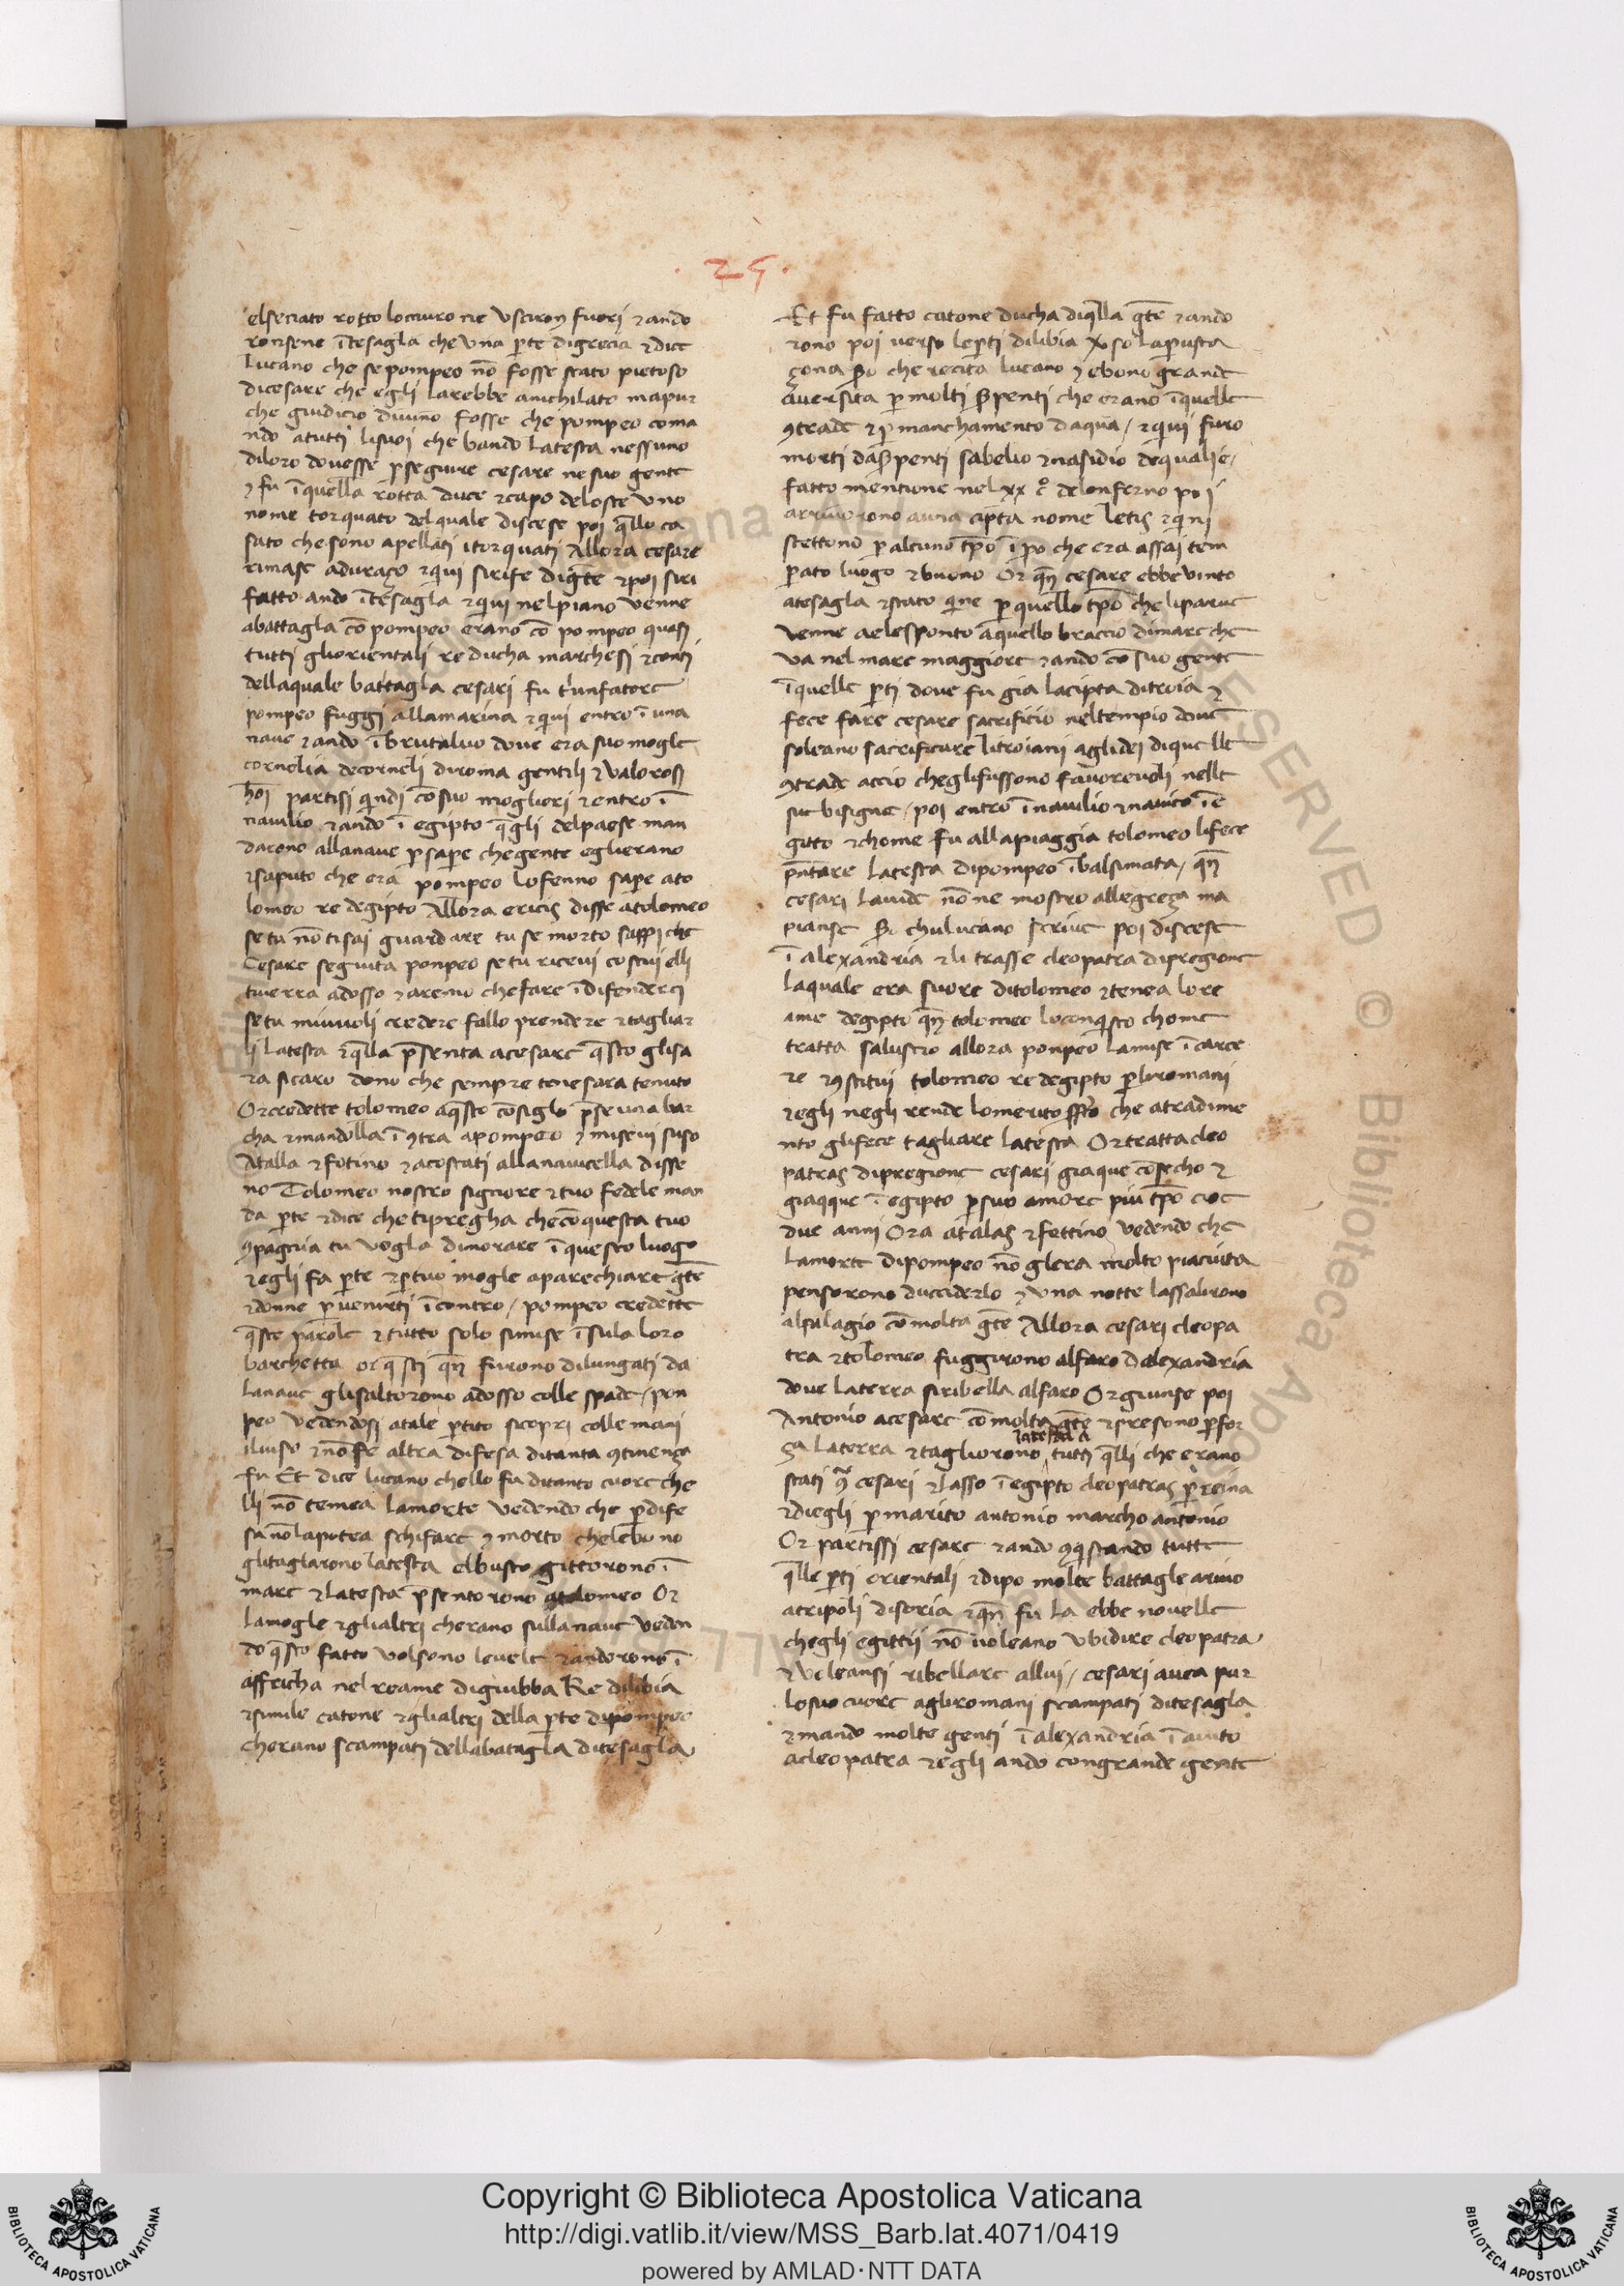 .25.
el serrato rotto lo muro ne usciron fuori ⁊ ando
ronsene ītesagla che una p̱te digrecia ⁊ dice
Lucano che se pompeo nō fosse stato pietoso
dicesare che egli larebbe anichilato mapur
che giudicio divino fosse che pompeo coma
ndo atutti lisuoi che bando latesta nessuno
diloro dovesse p̱seguire cesare ne suo gente
⁊ fu ī quella rotta duce ⁊ capo deloste uno
nome torquato delquale discese poi q̄llo ca
sato che sono apellati itorquati Allora cesare
rimase aduraço ⁊ qui sirife diḡte ⁊ poi siri
fatto ando ītesagla ⁊ qui nelpiano venne
abattagla cō pompeo erano cō pompeo quasi
tutti gliorientali re ducha marchesi ⁊ conti
dellaquale battagla cesari fu triunfatore
pompeo fuggi allamarina ⁊ qui entro ī una
nave ⁊ ando ī brutaluo dove era suo mogle
cornelia decorneli diroma gentili ⁊ valorosi
hōi partisi q̇ndi cō suo moglieri ⁊ entro ī
navilio ⁊ ando ī egipto q̄gli delpaese man
darono allanave p̱ sap̱e chegente eglierano
⁊ saputo che era pompeo lofenno sap̱e ato
lomeo re degipto Allora disse atolomeo
se tu nō tisai guardare tu se morto sappi che
Cesare seguita pompeo se tu ricevi costui elli
tiverra adosso ⁊ aremo chefare ī difenderci
se tu mivuoli credere fallo prendere ⁊ tagliar
li latesta ⁊ q̄lla p̄senta acesare q̄sto glisa
ra sicaro dono che sempre tene sara tenuto
Or credette tolomeo aq̄sto cōsiglo p̄se una bar
cha ⁊ mandolla ī ꝯtra apompeo ⁊ misevi suso
Atalla ⁊ fotino ⁊ acostati allanavicella disse
no Tolomeo nostro signore ⁊ tuo fedele man
da p̱te ⁊ dice che tipregha che cō questa tuo
ꝯpagnia tu vogla dimorare ī questo luogo
⁊ egli fa p̱te ⁊ p̱ tuo mogle aparechiare ḡte
⁊ donne p̱ venirti ī contro / pompeo credette
q̄ste parole ⁊ tutto solo simise ī sula loro
barchetta or q̄sti qn̄ furono dilungati da
lanave glisaltorono adosso colle spade / pon
peo vedendosi atale p̱tito sicopri colle mani
iluiso ⁊ nō fe altra difesa ditanta ꝯtinença
fu Et dice lucano chello fu ditanto cuore che
lli nō temea lamorte vedendo che p̱ dife
sa nō lapotea schifare ⁊ morto chelebono
glitaglarono latesta elbusto gittorono ī
mare ⁊ latesta p̄sentorono atolomeo Or
lamogle ⁊ glialtri cherano sullanave veden
do q̄sto fatto volsono levele ⁊ andorono ī
affricha nel reame digiubba Re dilibia
⁊ simile catone ⁊ glialtri della p̱te dipompeo
cherano scampati dellabatagla ditesagla
Et fu fatto catone ducha diq̄lla ḡte ⁊ ando
rono poi verso lep̱ti dilibia ṽso la p̱ usta
çona so che recita lucano ⁊ ebono grande
aversita p̱ molti serpenti che erano ī quelle
ꝯtrade ⁊ p̱ manchamento daqua / ⁊ qui furo
morti daserpenti sabelio ⁊ nasidio dequali e /
fatto mentione nel xx c° delonferno poi
arrivorono auna cipta nome letis ⁊ qini
stettono p̱ alcuno tp̄o ī p̱o che era assai tem
p̱ato luogo ⁊ buono Or qn̄ cesare ebbe vinto
atesagla ⁊ stato qine p̱ quello tp̄o che liparve
venne aelesponto aquello braccio dimare che
va nel mare maggiore ⁊ ando cō suo gente
ī quelle p̱ti dove fu gia lacipta ditroia ⁊
fece fare cesare sacrificio neltempio dove
soleano sacrificare litroiani aglidei diquelle
ꝯtrade accio cheglifussono favorevoli nelle
sue bisigne / poi entro ī navilio ⁊ navico ī e
gitto ⁊ chome fu allapiaggia tolomeo lifece
p̄ntare latesta dipompeo ī balsimata / qn̄
cesari lavide nō ne mostro allegreça ma
pianse so chulucano scrive poi discese
ī alexandria ⁊ li trasse cleopatra dipregione
laquale era suore ditolomeo ⁊ tenea lo re
ame degipto qn̄ tolomeo loconq̇sto chome
tratta salustro allora ponpeo lamise ī carce
re ⁊ ꝯstitui tolomeo re degipto p̱ liromani
⁊ egli negli rende lomerito che atradime
nto glifece tagliare latesta Or tratta cleo
patras dipregione cesari giaque cō secho ⁊
giaqque ī egipto p̱ suo amore piu tp̄o cioe
due anni Ora atalas ⁊ fettino vedendo che
lamorte dipompeo nō glera molto piaciuta
pensorono ducciderlo ⁊ una notte lassalirono
alpalagio cō molta ḡte Allora cesari cleopa
tra ⁊ tolomeo fuggirono alfaro dalexandria
dove laterra siribella alfaro Or giunse poi
Antonio acesare cō molta ḡte ⁊ presono p̱ for
ça laterra ⁊ tagliorono latesta a tutti q̄lli che erano
stati ꝯᵃ cesari ⁊ lasso ī egipto cleopatras p̱ reina
⁊ diegli p̱ marito antonio marcho antonio
Or partissi cesare ⁊ ando ꝯq̇stando tutte
q̄lle p̱ti orientali ⁊ dipo molte battagle arivo
atripoli disoria ⁊ qn̄ fu la ebbe novelle
chegli egittii nō voleano ubidire cleopatra
⁊ voleansi ribellare allui / cesari avea pur
losuo cuore agliromani scampati ditesagla
⁊ mando molte genti ī alexandria ī aiuto
acleopatra ⁊ egli ando congrande gente
Copyright © Biblioteca Apostolica Vaticana
http://digi.vatlib.it/view/MSS_Barb.lat.4071/0419
powered by AMLAD·NTT DATA
BIBLIOTECA APOSTOLICA VATICANA
BIBLIOTECA APOSTOLICA VATICANA